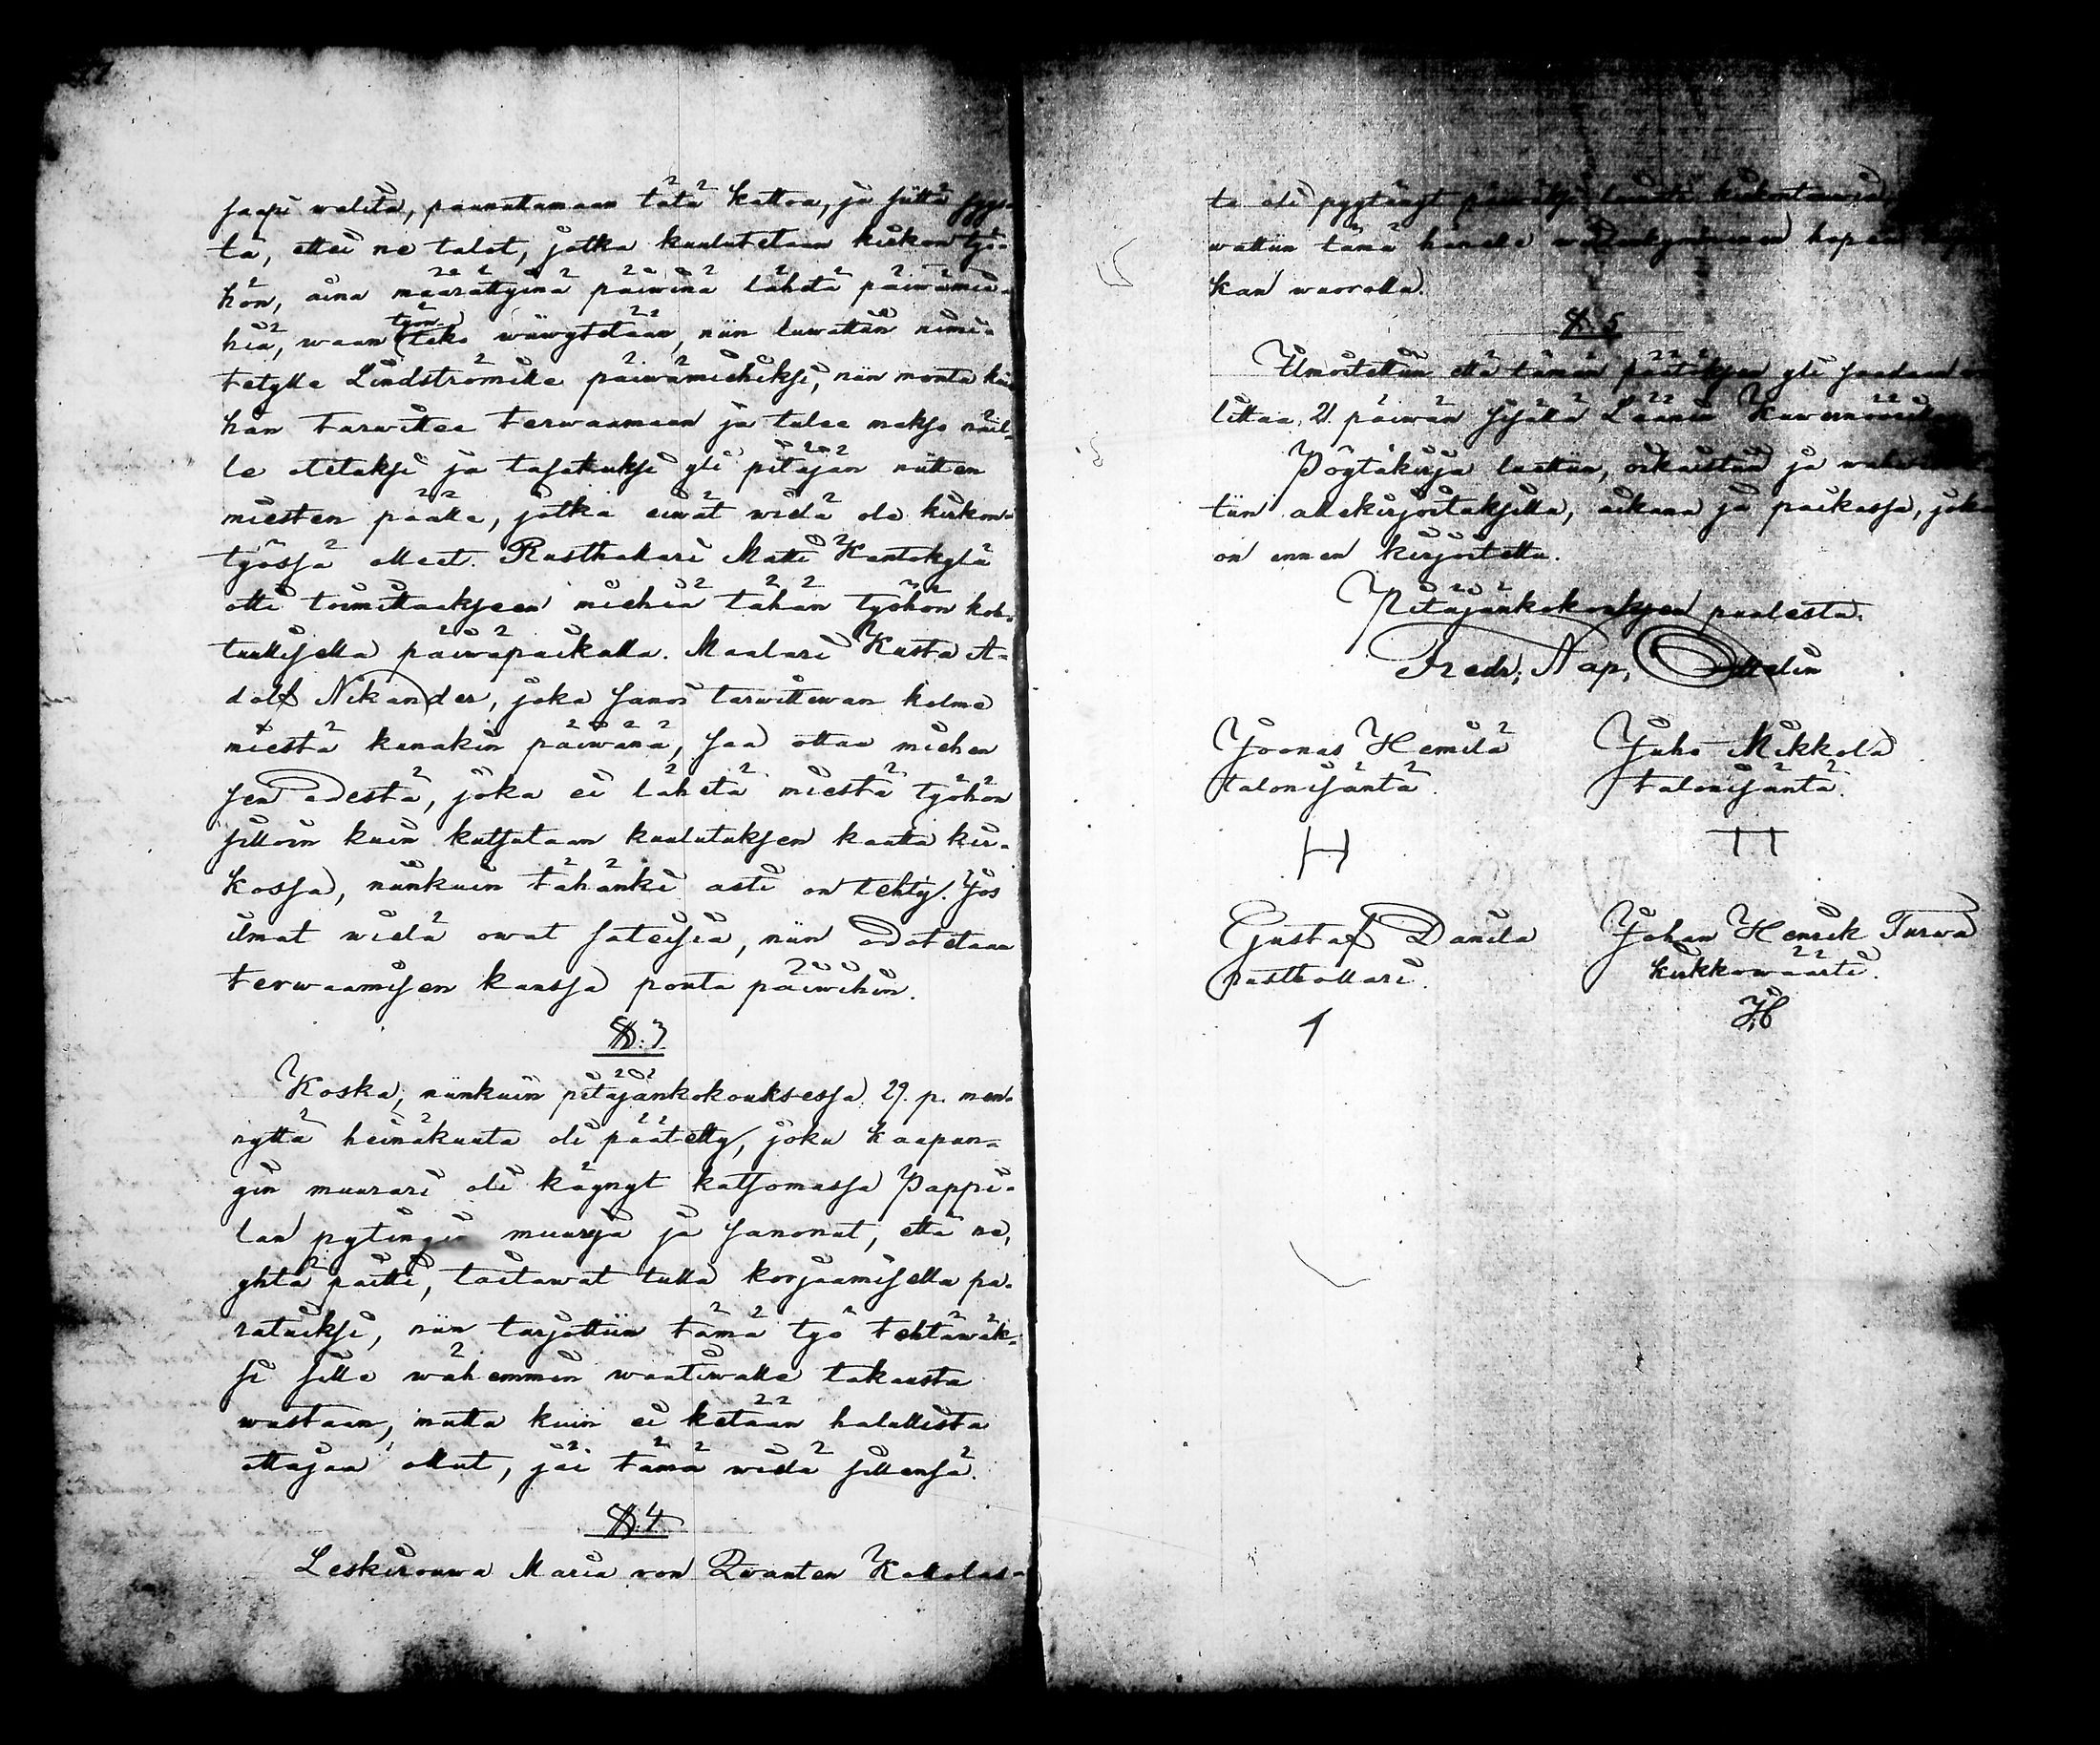 saapi walita, paanuttamaan tätä kattoa, ja siitä syys-
tä, ettei ne talot, jotka kuulutetaan kirkon työ-
hön, aina määrättyinä päiwinä lähetä päiwämie-
hiä, waan työn teko wiiwytetään, niin luwattiin nimi-
tetylle Lindströmille päiwämiehiksi, niin monta kuin
hän tarwittee terwaamaan ja tulee makso näil-
le otetaksi ja tasatuksi yli pitäjän niitten
miesten päälle, jotka eiwät wielä ole kirkon-
työssä olleet. Rusthollari Matti Kantokylä
otti toimittaakseen miehiä tähän työhön koh-
tuullisella päiwäpaikalla. Maalari Kusta A-
dolf Nikander, joka sanoi tarwittewan kolme
miestä kunakin päiwänä, saa ottaa miehen
sen edestä, joka ei lähetä miestä työhön
silloin kuin kutsutaan kuulutuksen kautta kir-
kossa, niinkuin tähänki asti on tehty. Jos
ilmat wielä owat sateisia, niin odotetaan
terwaamisen kanssa pouta päiwihin.
§. 3
Koska, niinkuin pitäjänkokouksessa 29. p. men-
nyttä heinäkuuta oli päätetty, joku kaapun-
gin muurari oli käynyt katsomassa Pappi-
lan pytingin muurja ja sanonut, että ne,
yhtä paitti, taitawat tulla korjaamisella pa-
ratuiksi, niin tarjottiin tämä työ tehtäwäk-
si sille wähemmin waatiwalle takausta
wastaan, mutta kuin ei ketään halullista
ottajaa ollut, jäi tämä wielä sillensä.
§. 4.
Leskirouwa Maria von Qvanten Kallolas-
ta oli pyytänyt
wattiin tämä hänelle hopea
kan wuorolla.
§. 5
Ilmoitettiin että tämän päätöksen yli saadaan
littaa 21 päiwän sisällä Läänin Kuwernöörille
Pöytäkirja luettiin, oikaistiin ja
tiin allekirjoituksilla, aikana ja paikassa, joka
on ennen kirjoitettu.
Pitäjänkokouksen puolesta.
Fredr. Nap.
Joonas Hemilä Juho Mikkola
talonisäntä. talonisäntä.
H H
Gustaf Danila Johan Henrik Turwa
rusthollari. kirkkowäärti.
1 JH